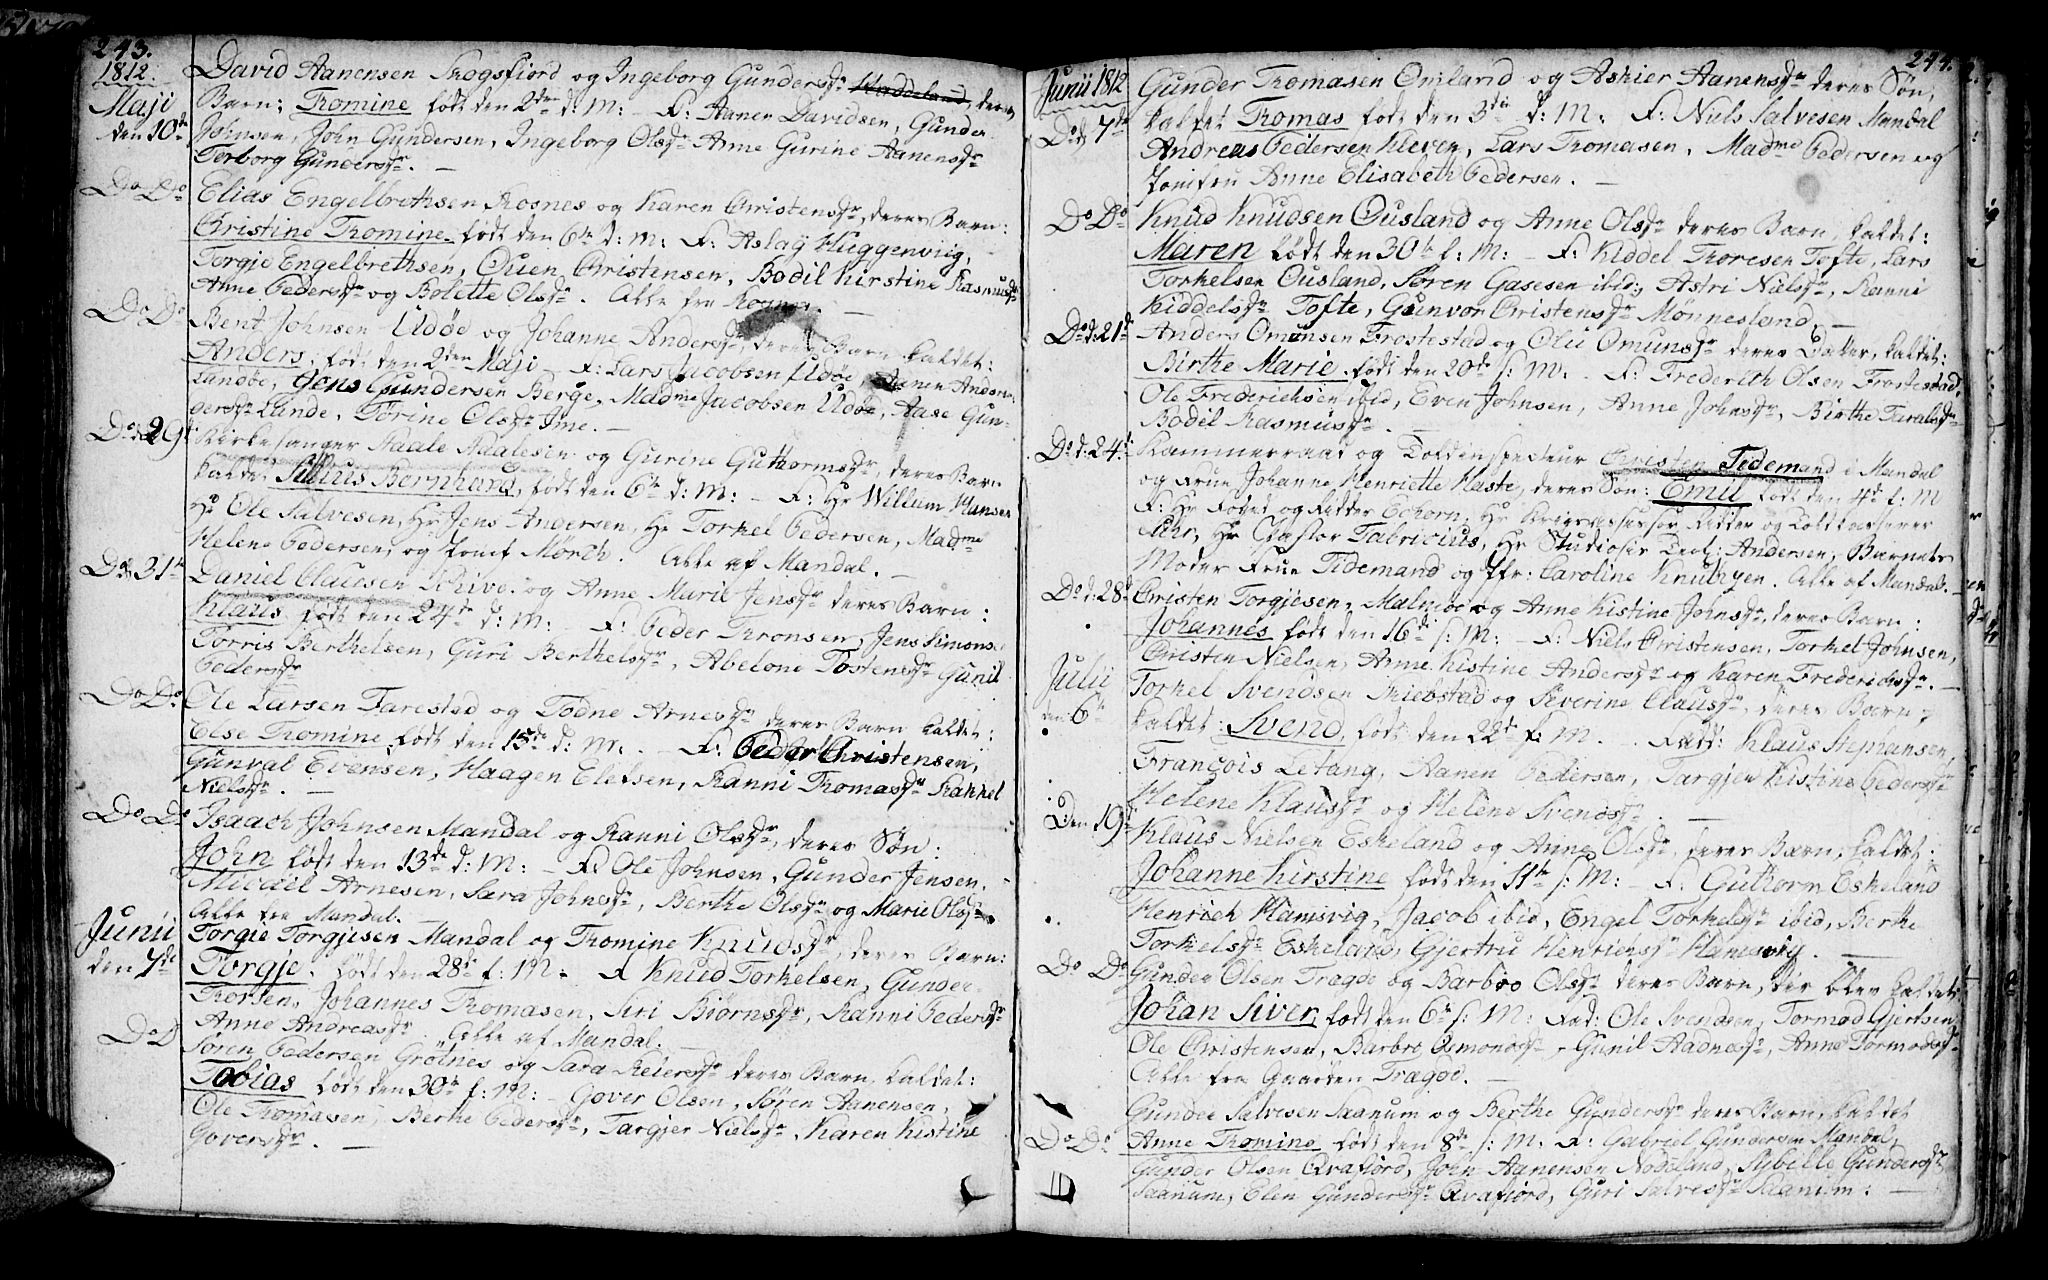 243.
1812.
Maji
den 10de
David Aanensen Skogsfiord og Ingeborg Gundersdr Haddeland, deres
Barn: Tromine født den 2den d: M: - F: Aanen Davidsen, Gunder
Johnsen, John Gundersen, Ingeborg Olsdr Anne Gurine Aanensdr
Torborg Gundersdr. -
Do Do
Elias Engelbrethsen Rosnes og Karen Christensdr, deres Barn:
Christine Tromine født den 6te d: M: F: Aslag Huggenviig,
Torgje Engelbrethsen, Ouen Christensen, Bodil Kirstine Rasmusdr
Anne Pedersdr og Bolette Olsdr. Alle fra
Do Do
Bent Johnsen Udøe og Johanne Andersdr, deres Barn kaldet:
Anders, født den 2den Maji - F: Lars Jacobsen Udøe, Aanen Anders
Landøe, Jens Gundersen Berge, Madme Jacobsen Udøe, Aase Gun-
gersdr Lunde, Tørine Olsdr Ime. -
Do 29
Kirkesanger Aadle Aadlesen og Gurine Guthormsdr, deres Barn
kaldet Julius Bernhard, født den 6te d: M: - F: Hr Willum Hansen
Hr Ole Salvesen, Hr Jens Andersen, Hr Torkel Pedersen, Madme
Helene Pedersen, og Jomf Mørch. Alle af Mandal. -
Do 31te
Daniel Clausen Schive og Anne Marie Jensdr deres Barn:
Klaus født den 24de d: M: - F: Peder Tronsen, Jens Simonse
Torris Berthelsen, Guri Berthelsdr, Abelone Tostensdr Gunil
Pedersdr
Do Do
Ole Larsen Farestad og Todne Arnesdr deres Barn kaldet:
Else Tromine født den 15de d: M: - F: Peder Christensen,
Gunval Evensen, Haagen Elefsen, Ranni Thomasdr Rakkel
Nielsdr. -
Do Do
Isaach Johnsen Mandal og Ranni Olsdr, deres Søn:
John født den 13de d: M: - F: Ole Johnsen, Gunder Jensen,
Michel Arnesen, Sara Johnsdr, Berthe Olsdr og Marie Olsdr
Alle fra Mandal. -
Junii
den 7de
Torgie Torgjesen Mandal og Tromine Knudsdr, deres Barn:
Torgje. født den 28de f: M: - F Knud Torkelsen, Gunder
Thorsen, Johannes Thomasen, Siri Biørnsdr, Ranni Pedersdr
Anne Andreasdr. Alle af Mandal. -
Do D
Søren Pedersen Grøtnes og Sara Reiersdr deres Barn kaldet:
Tobias født den 30te f: M: - Gover Olsen, Søren Aanensen,
Ole Thomasen, Berthe Pedersdr, Targjer Nielsdr, Karen Kistine
Goversdr. -
244.
Junii 1812
Do 7de
Gunder Thomasen Omland og Askier Aanensdr deres Søn,
kaldet Thomas født den 3die d: M: F: Niels Salvesen Mandal
Andreas Pedersen Kleven, Lars Thomasen, Madme Pedersen og
Jomfru Anne Elisabeth Pedersen. -
Do Do
Knud Knudsen Ousland og Anne Olsdr deres Barn, kaldet:
Maren født den 30te f: M: - F: Kiddel Thoresen Tofte, Lars
Torkelsen Ousland, Søren Gasesen ibid:, Astri Nielsdr, Ranni
Kiddelsdr Tofte, Gunvor Christensdr Mønnesland. -
Do d: 21de
Anders Omunsen Frostestad og Oliv Omunsdr deres Datter, kaldet:
Birthe Marie, født den 20de f: M: - F: Frederich Olsen Frostestad,
Ole Frederichsen ibid, Even Johnsen, Anne Johnsdr, Birthe Taraldsdr
Bodil Rasmusdr. -
Do d: 24de
Kammerraad og Toldinspecteur Christen Tidemand i Mandal
og Frue Johanne Henriette Haste, deres Søn: Emil født den 4de f: M
F: Hr Foged og Ridder Echorn, Hr Krigsassessor Ridder og Toldkasserer
Hr Pastor Fabricius, Hr Studiosus Andersen, Barnets
Moder Frue Tidemand og Jfr: Caroline Knuthzen. Alle af Mandal.
Do d: 28de
Christen Torgjesen Malmøe og Anne Kistine Johnsdr, deres Barn:
Johannes født den 16de f: M: - F: Niels Christensen, Torkel Johnsen,
Christen Nielsen, Anne Kistine Andersdr og Karen Frederichsdr. -
Julii
den 6te
Torkel Svendsen Skiebstad og Severine Clausdr, deres Barn,
kaldet: Svend, født den 22de f: M. Fadd: Klaus Stephansen,
François Letang, Aanen Pedersen, Targjer Kistine Pedersdr
Helene Klausdr og Helene Svendsdr. -
Den 19de
Klaus Nielsen Eskeland og Anne Olsdr, deres Barn, kaldet:
Johanne Kirstine født den 11te f: M: - F: Guthorm Eskeland
Henrich Hamsvig, Jacob ibid, Engel Torkelsdr ibid, Berthe
Torkelsdr Eskeland, Gjertru Henrichsdr Hamsvig. -
Do Do
Gunder Olsen Tragde og Barbro Olsdr deres Barn, der blev kaldet
Johan Siver, født den 6te f: M: Fad: Ole Svendsen, Tormod Gjertsen,
Ole Christensen, Barbro Osmondsdr, Gunil Aadnesdr, Anne Tormodsdr
Alle fra Gaarden Tragde. -
Do Do
Gunder Salvesen Skanum og Berthe Gundersdr deres Barn, kaldet
Anne Tromine født den 8de f: M. F: Gabriel Gundersen Mandal,
Gunder Olsen Qvafjord, John Aanensen Nodeland, Sybille Gundersdr
Skanum, Elen Gundersdr Qvafjord, Guri Salvesdr Skanum: -